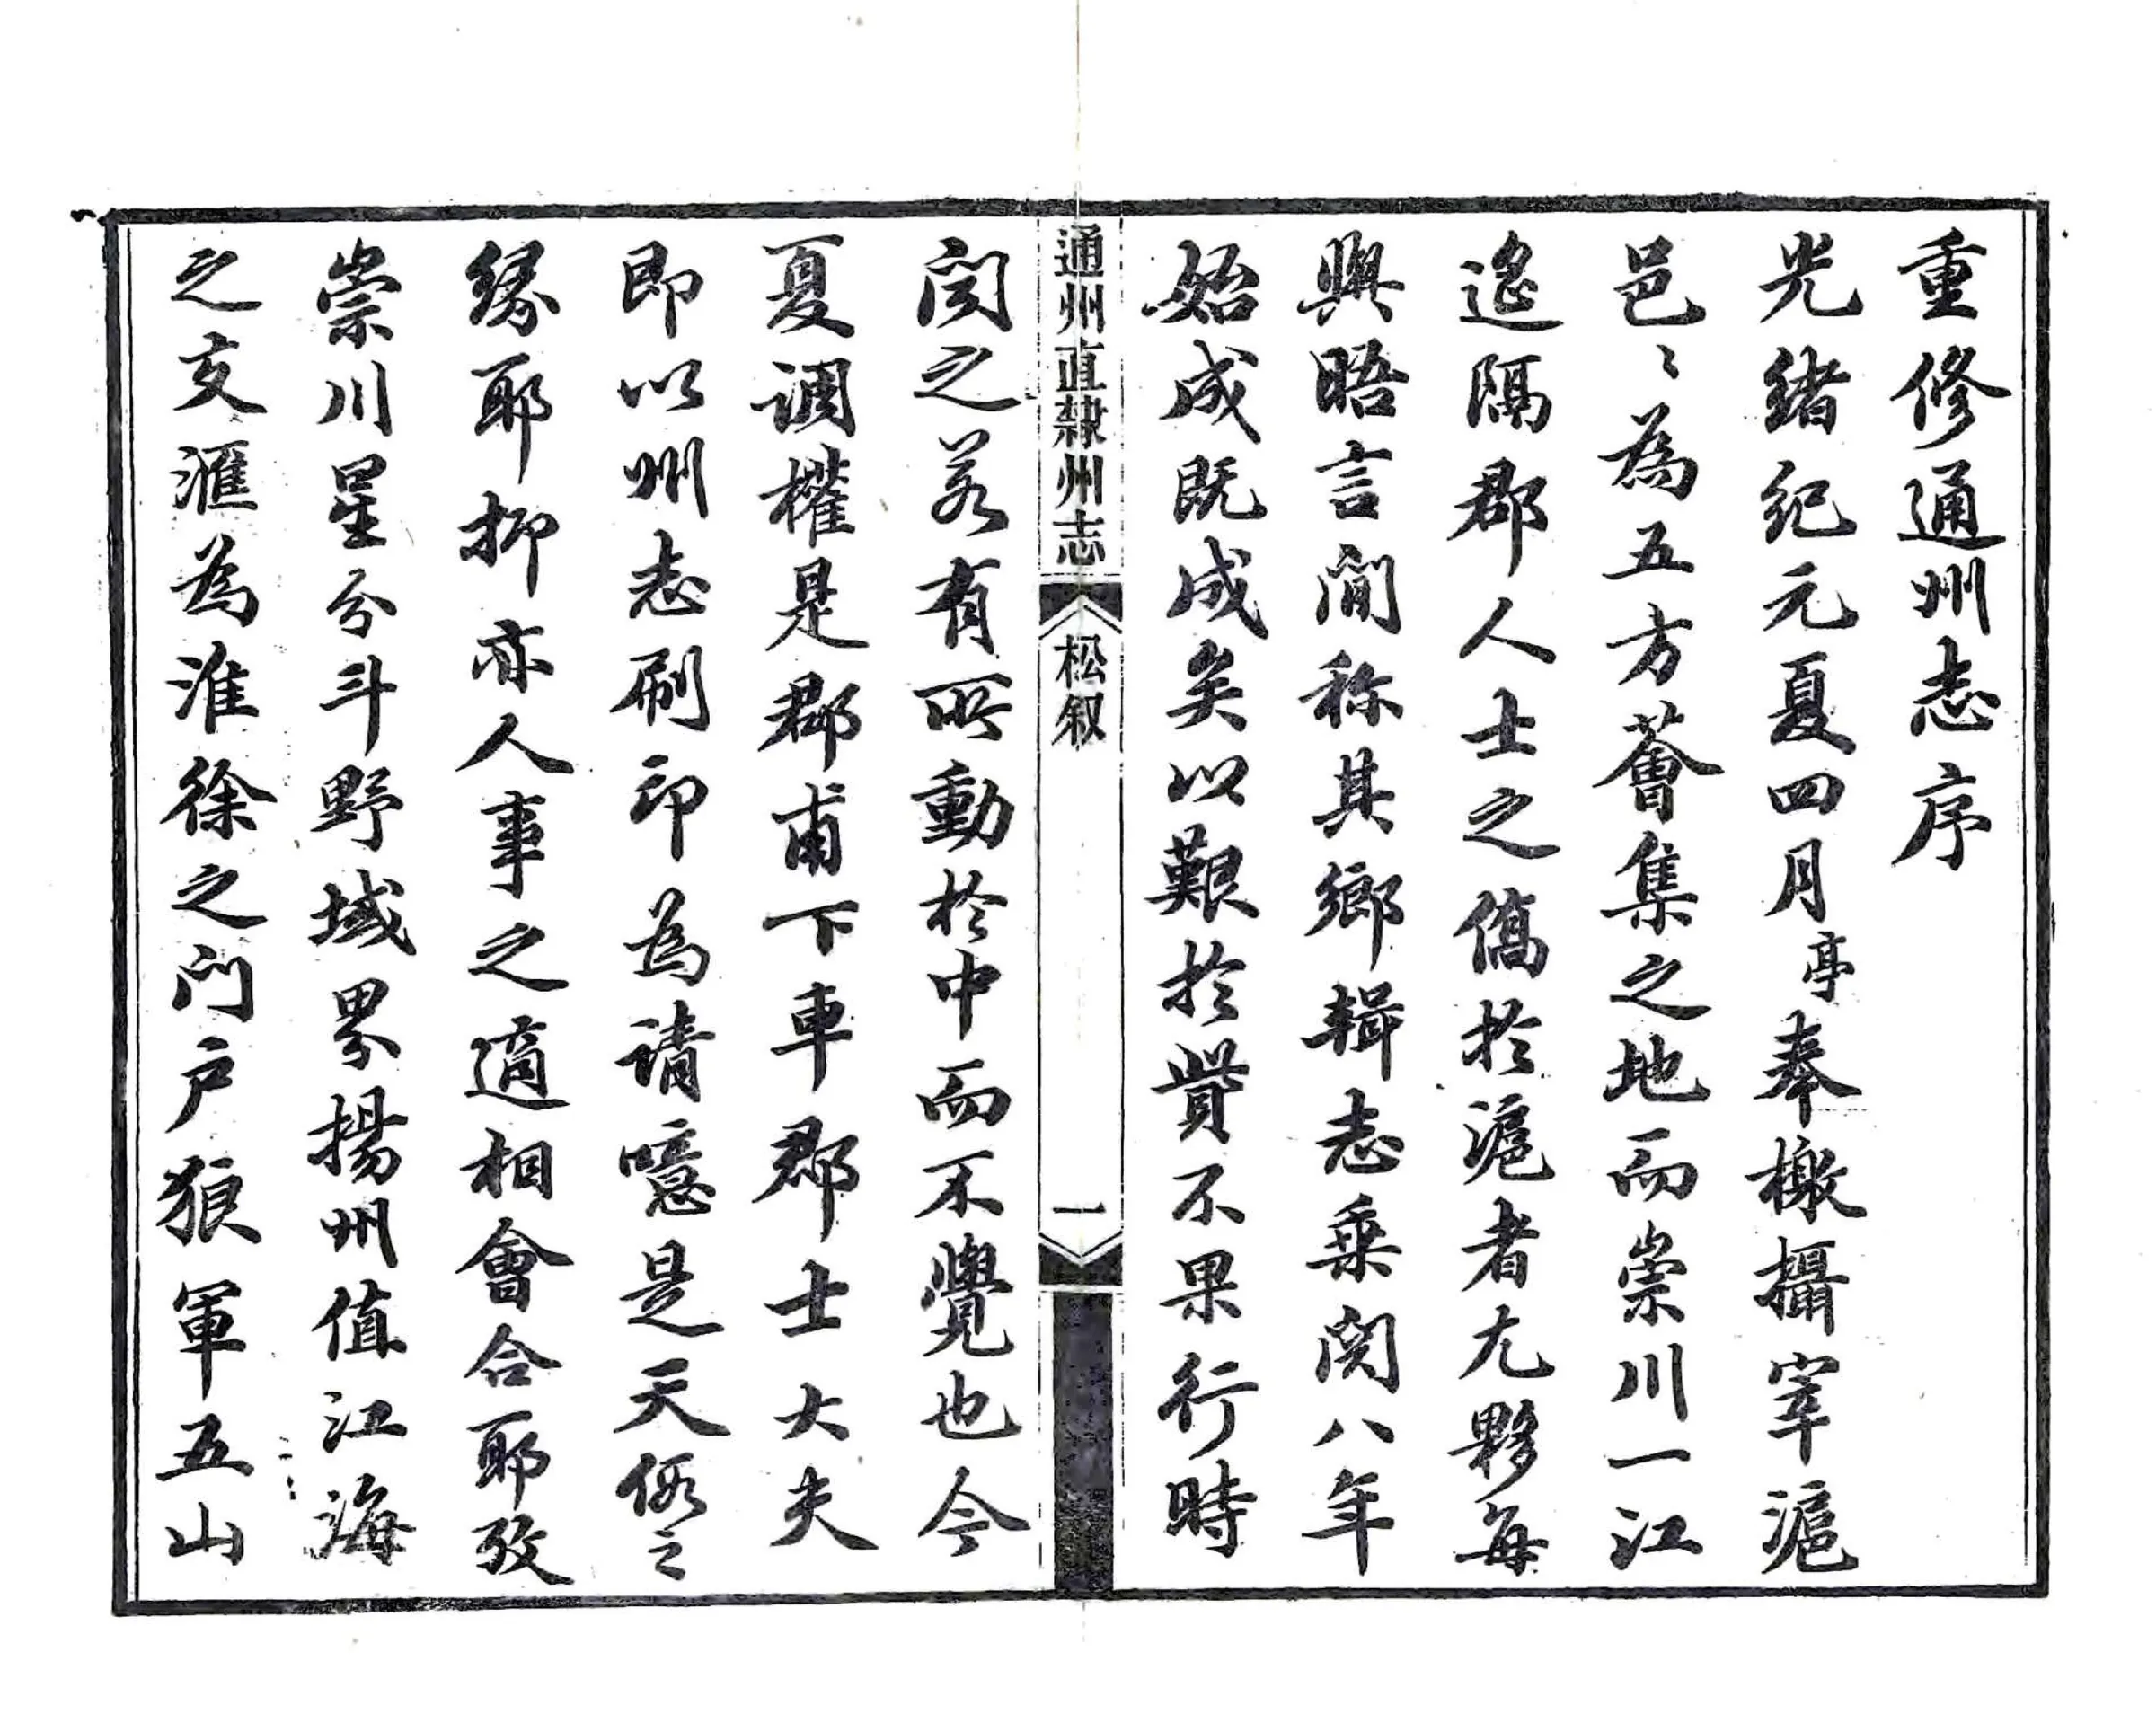 重修通州志序
光緒紀元夏四月亭奉檄攝宰滬
邑〻為五方薈集之地而崇川一江
遙隔郡人士之僑於滬者尤夥每
與晤言間称其鄉輯志乘閱八年
始成既成矣以艱於貲不果行時
聞之若有所動於中而不覺也今
夏調權是郡甫下車郡士大夫
即以州志刷印為請噫是天假之
緣耶抑亦人事之適相會合耶攷
崇川星分斗野域界揚州值江海
之交滙為淮徐之门户狼軍五山
通州直隸州志
松叙
一